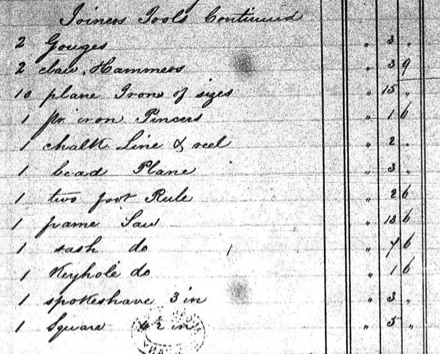 Joiners Tools Continued
2 Gouges " 3 "
2 claw Hammers " 3 9
10 plane Irons of sizes " 15 "
1 pr iron Pincers " 1 6
1 chalk Line & reel " 2 "
1 bead Plane " 3 "
1 two foot Rule " 2 6
1 frame Saw " 13 6
1 sash do " 7 6
1 Keyhole do " 1 6
1 spokeshave 3 in " 3 "
1 Square 42 in " 5 "